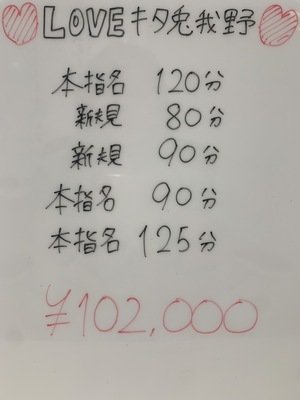 LOVEキタ兎我野
本指名 120分
新規 80分
新規 90分
本指名 90分
本指名 125分
¥102,000